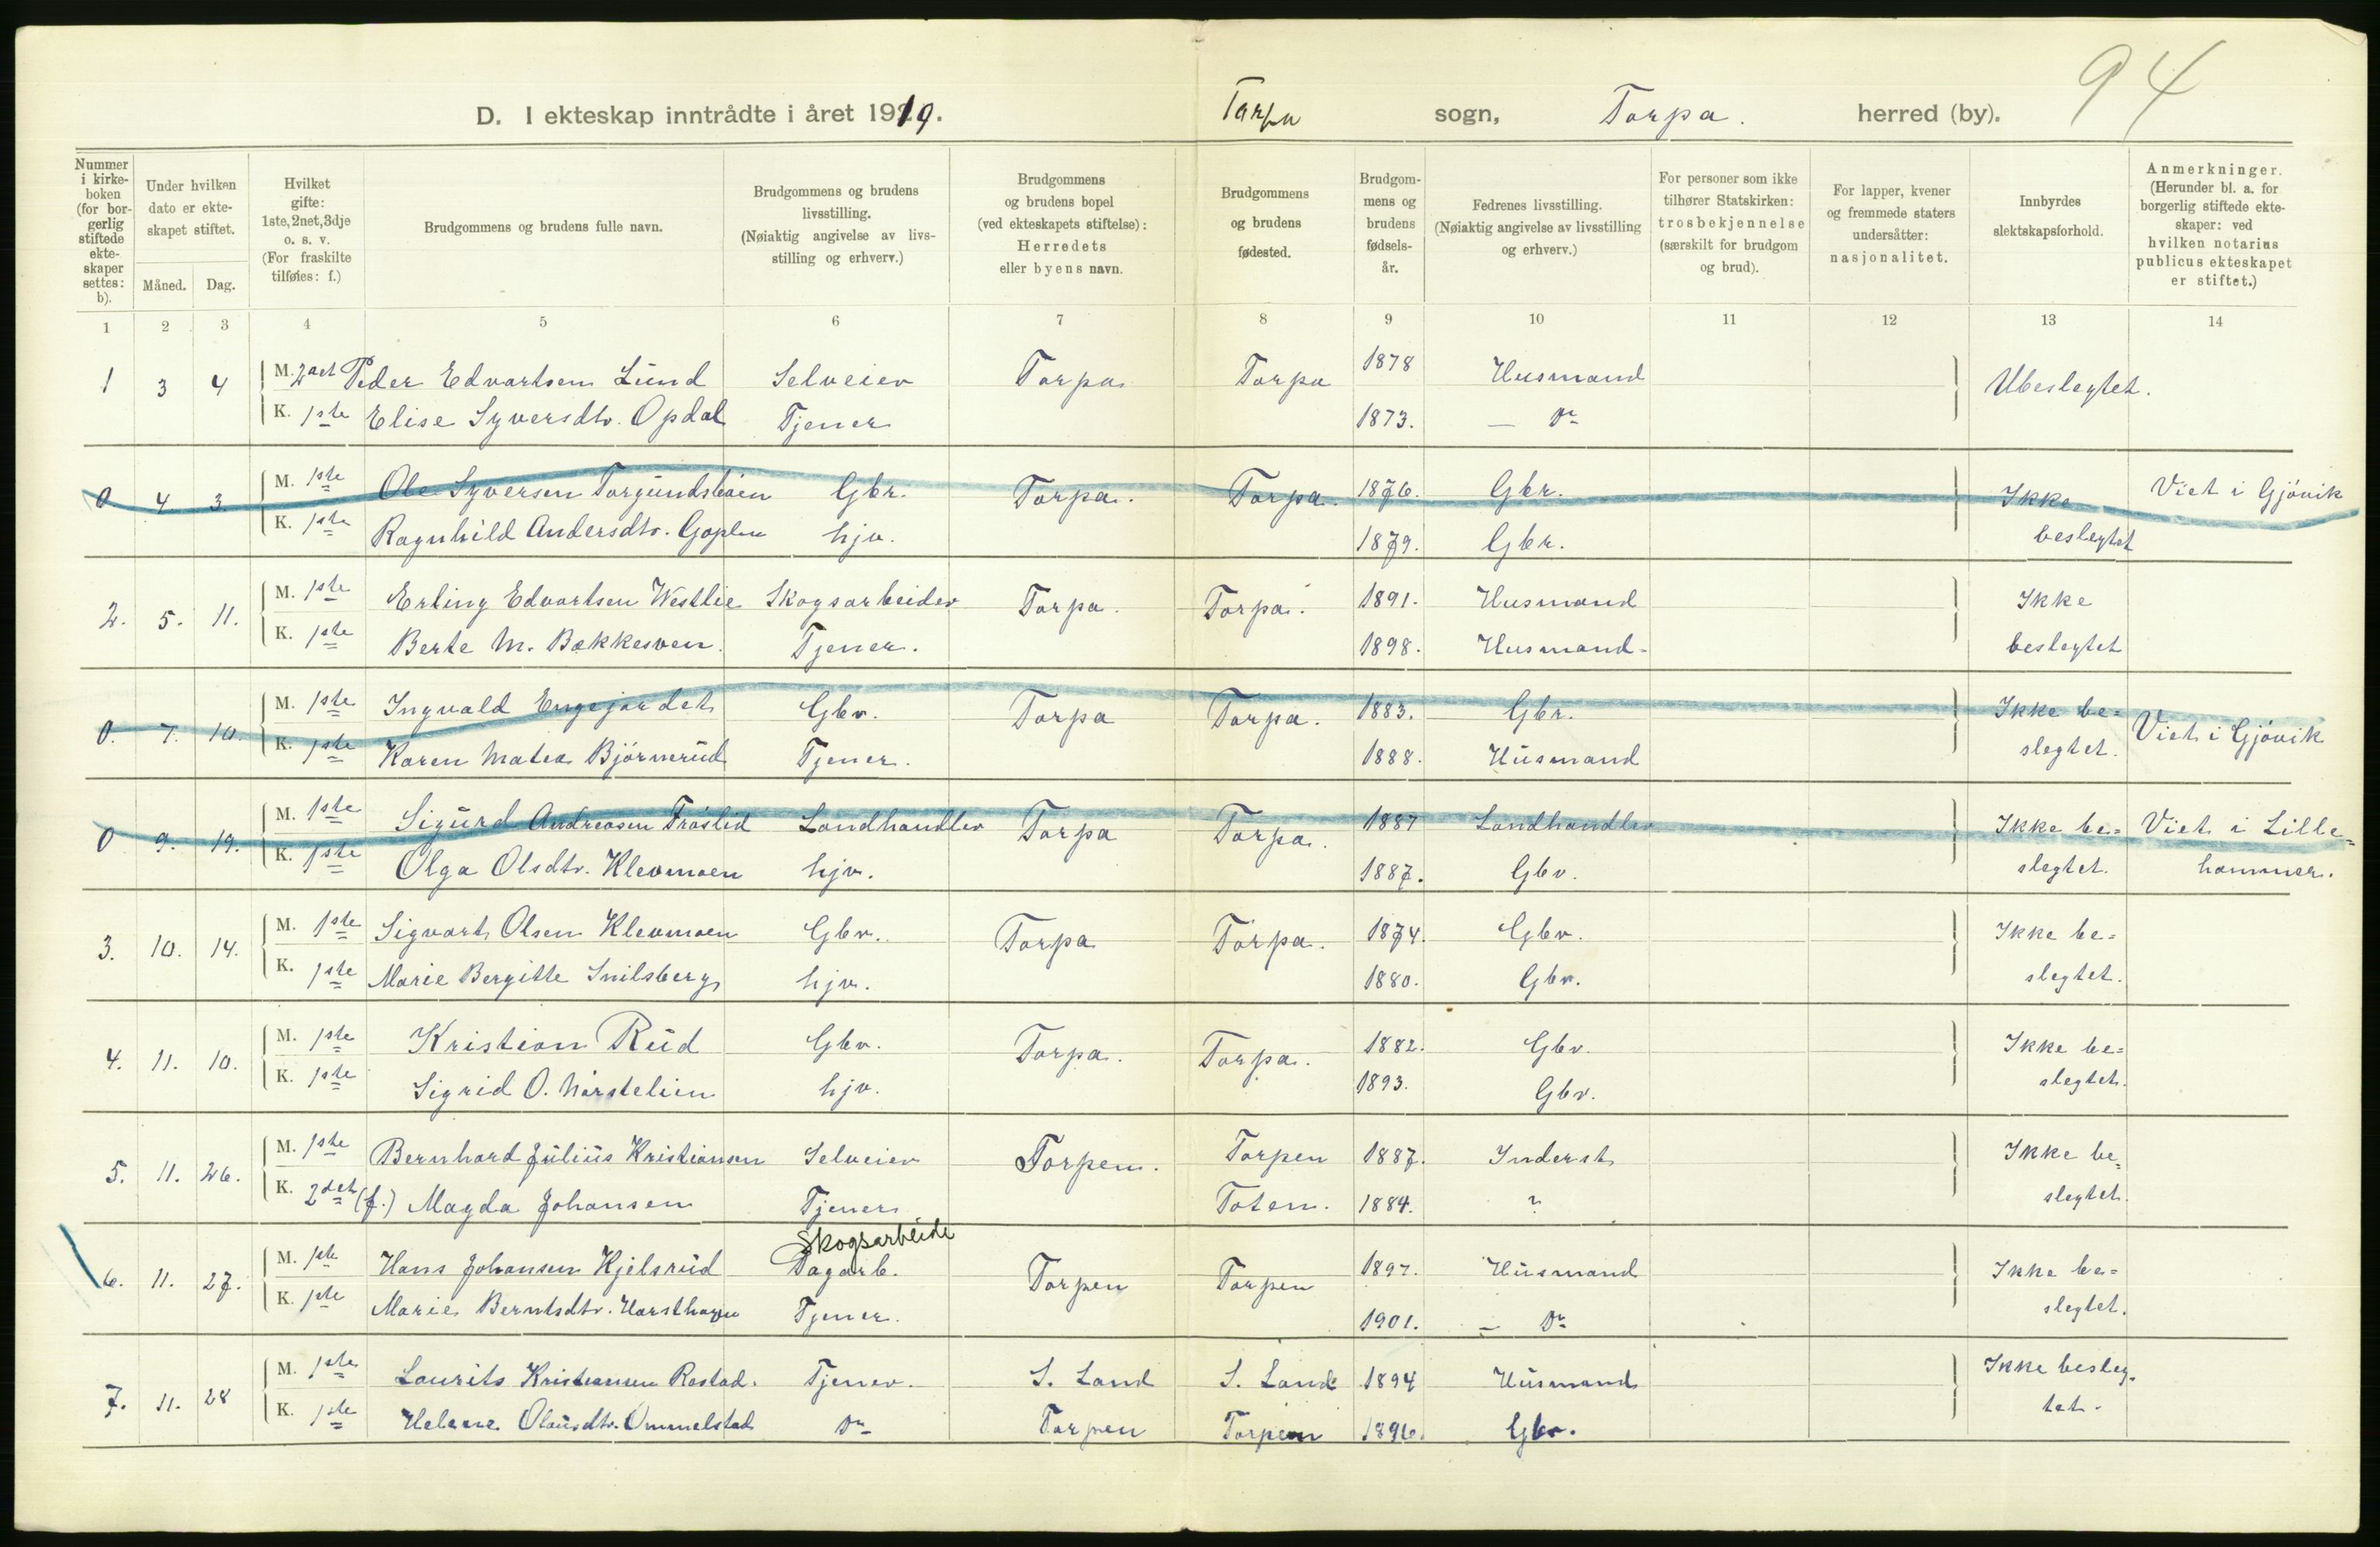 94
D. I ekteskap inntrådte i året 1919. Torpa sogn, Torpa. herred (by).
Nummer i kirke-boken (for bor-gerlig stiftede ekte-skaper settes: b).
Under hvilken dato er ekte-skapet stiftet.
Måned. Dag.
Hvilket gifte: 1ste, 2net, 3dje o. s. v. (For fraskilte tilføies: f.)
Brudgommens og brudens fulle navn.
Brudgommens og brudens livsstilling. (Nøiaktig angivelse av livs-stilling og erhverv.)
Brudgommens og brudens bopel (ved ekteskapets stiftelse): Herredets eller byens navn.
Brudgommens og brudens fødested.
Brudgom-mens og brudens fødsels-år.
Fedrenes livsstilling. (Nøiaktig angivelse av livsstilling og erhverv.)
For personer som ikke tilhører Statskirken: trosbekjennelse (særskilt for brudgom og brud).
For lapper, kvener og fremmede staters undersåtter: nasjonalitet.
Innbyrdes slektskapsforhold.
Anmerkninger. (Herunder bl. a. for borgerlig stiftede ekte-skaper: ved hvilken notarius publicus ekteskapet er stiftet.)
1 2 3 4 5 6 7 8 9 10 11 12 13 14
1 3 4 M. 2det Peder Edvartsen Lund Selveier Torpa Torpa 1878 Husmand Ubeslegtet.
K. 1ste Elise Syversdtr. Opdal Tjener 1873. — Do
0 4 3 M. 1ste Ole Syversen Torgundsleien Gbr. Torpa. Torpa. 1876. Gbr. Ikke Viet i Gjövik
K. 1ste Ragnhild Andersdtr. Goplen hjv. 1879. Gbr. beslegtet
2. 5. 11. M. 1ste Erling Edvartsen Westlie Skogsarbeider Torpa. Torpa. 1891. Husmand Ikke
K. 1ste Berte M. Bækkesven. Tjener. 1898. Husmand. beslegtet
0. 7. 10. M. 1ste Ingvald Engejordet Gbr. Torpa Torpa. 1883. Gbr. Ikke be= Viet i Gjövik
K. 1ste Karen Matea Björnerud Tjener. 1888. Husmand slegtet.
0 9. 19. M. 1ste Sigurd Andreasen Fröslid Landhandler Torpa Torpa. 1887 Landhandler Ikke be= Viet i Lille=
K. 1ste Olga Olsdtr. Klevmoen hjv. 1887. Gbr. slegtet. hammer.
3. 10. 14. M. 1ste Sigvart Olsen Klevmoen Gbr. Torpa Torpa. 1874. Gbr. Ikke be=
K. 1ste Marie Bergitte Snilsberg hjv. 1880. Gbr. slegtet.
4. 11. 10. M. 1ste Kristian Rud Gbr. Torpa. Torpa. 1882. Gbr. Ikke be=
K. 1ste Sigrid O. Nørstelien hjv. 1893. Gbr. slegtet.
5. 11. 26. M. 1ste Bernhard Julius Kristiansen Selveier Torpen. Torpen 1887. Inderst Ikke be=
K. 2det (f.) Magda Johansen Tjener Toten. 1884. ? slegtet.
Skogsarbeide
6. 11. 27. M. 1ste Hans Johansen Kjelsrud Dagarb. Torpen Torpen 1897. Husmand Ikke be=
K. 1ste Marie Berntsdtr. Tjener. 1901. — Do slegtet.
7. 11. 28 M. 1ste Laurits Kristiansen Rostad. Tjener. S. Land S. Land 1894 Husmand Ikke besleg=
K. 1ste Helene Olausdtr. Ommelstad Do Torpen Torpen 1896. Gbr. tet.